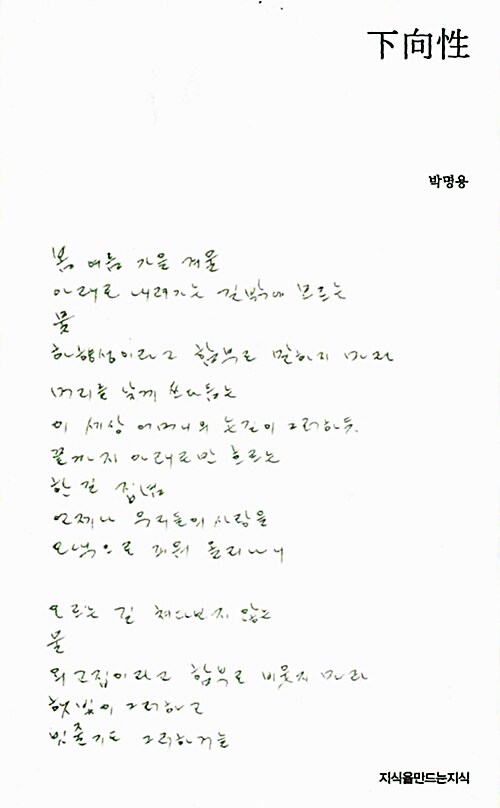 下向性
박명용
봄 여름 가을 겨울
아래로 내려가는 길밖에 모르는
물
하향성이라고 함부로 말하지 마라
머리를 낮게 쓰다듬는
이 세상 어머니의 눈길이 그러하듯
끝까지 아래로만 흐르는
한 길 집념
언제나 우리들의 사랑을
으로
오르는 길 쳐다보지 않는
물
외고집이라고 함부로 비웃지 마라
햇빛이 그러하고
빗줄기도 그러하거늘
지식을만드는지식